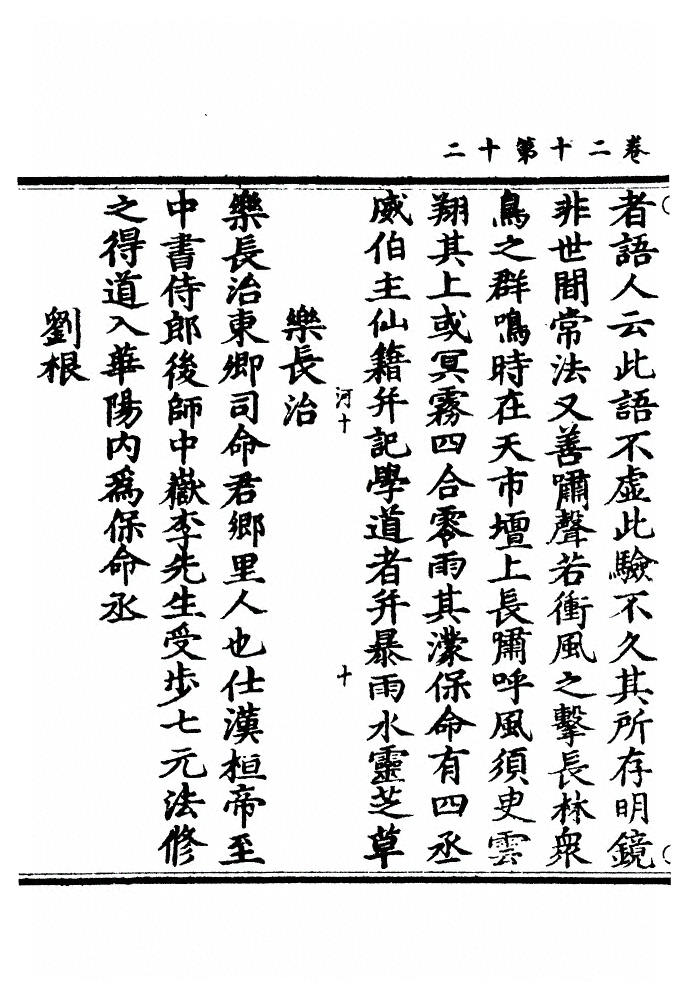 卷二十第十二
者語人云此語不虛此驗不久其所存明鏡
非世間常法又善嘯聲若衝風之擊長林衆
鳥之群鳴時在天市壇上長嘯呼風須史雲
翔其上或冥霧四合零雨其濛保命有四丞
威伯主仙籍并記學道者并暴雨水靈芝草
河十
十
樂長治
樂長治東卿司命君鄉里人也仕漢桓帝至
中書侍郎後師中嶽李先生受步七元法修
之得道入華陽內爲保命丞
劉根